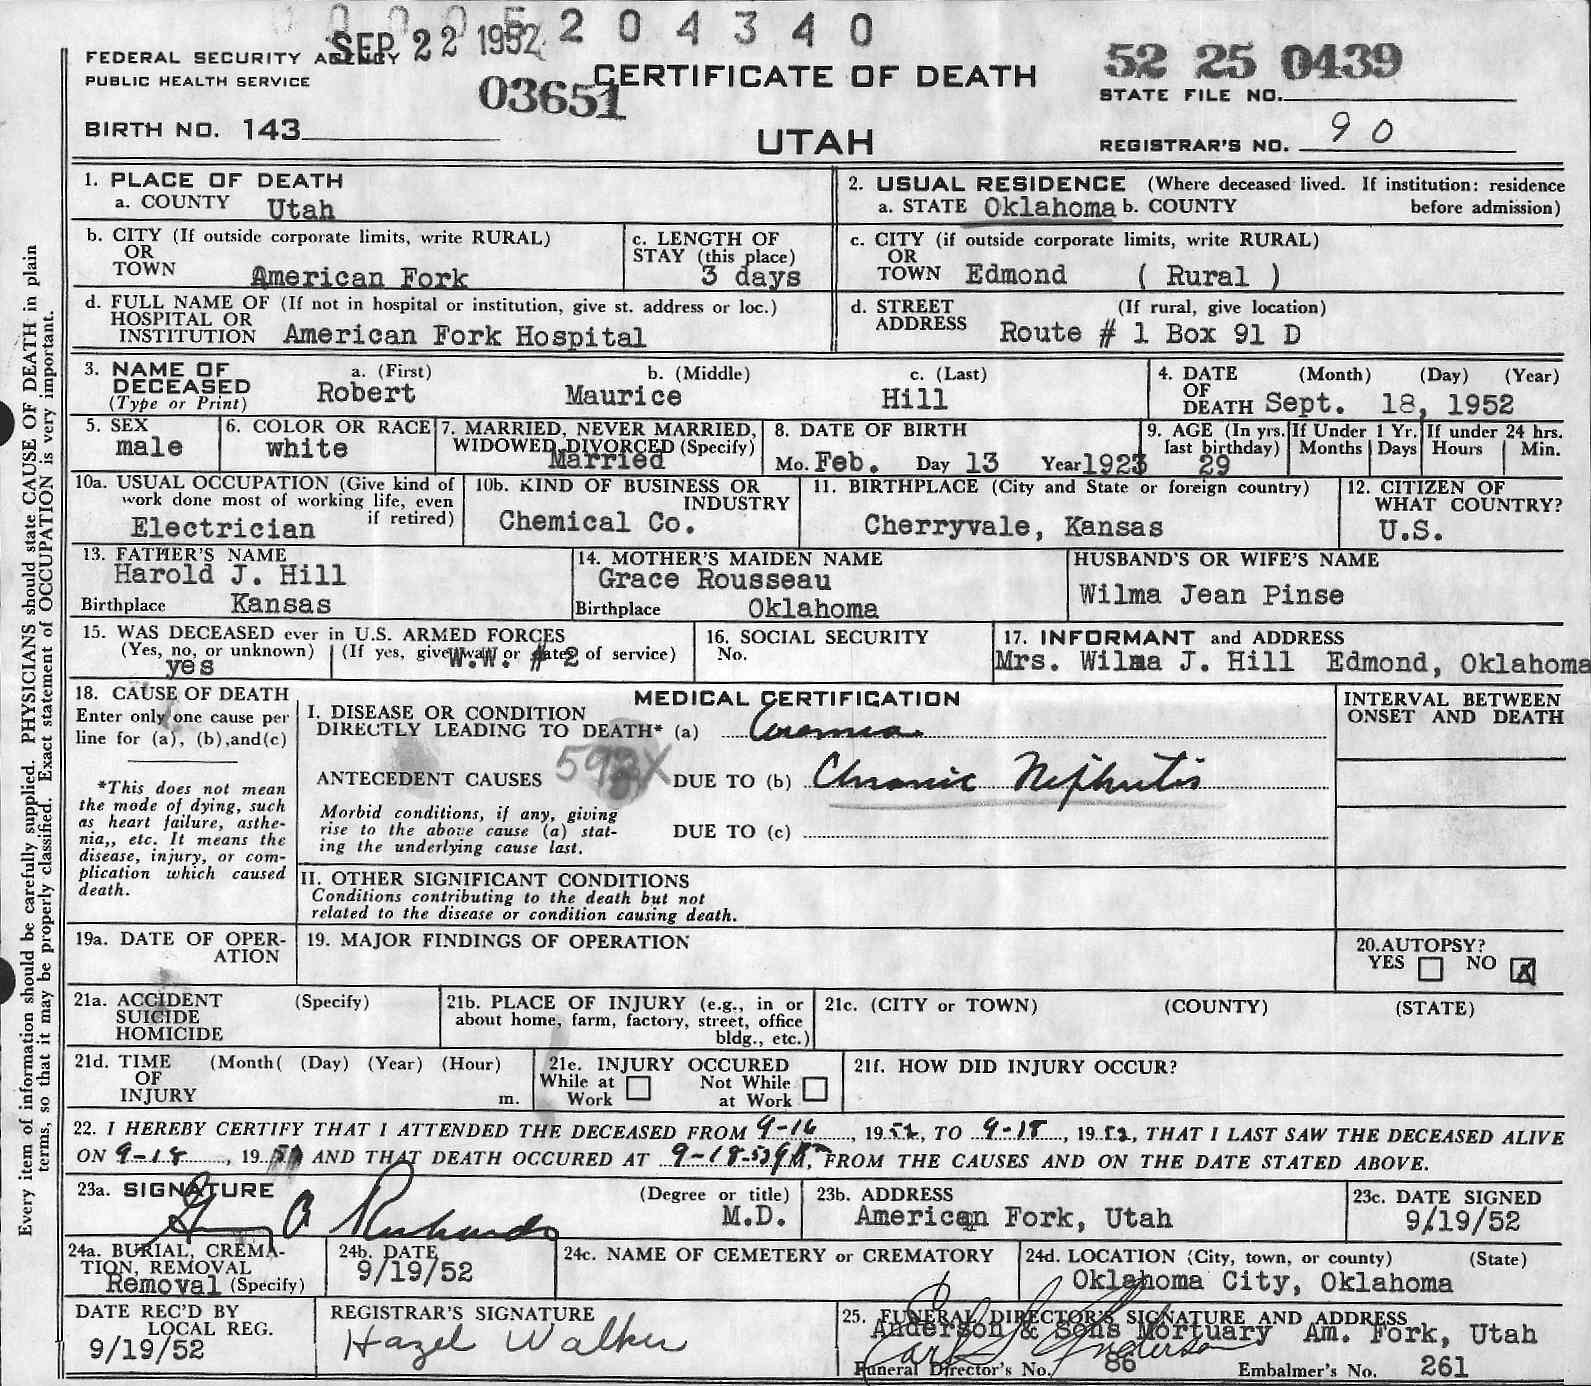 204340
SEP 22 1952
FEDERAL SECURITY AGENCY
PUBLIC HEALTH SERVICE
03651
CERTIFICATE OF DEATH
52 25 0439
STATE FILE NO.
BIRTH NO. 143
UTAH
REGISTRAR'S NO. 90
1. PLACE OF DEATH
a. COUNTY Utah
2. USUAL RESIDENCE (Where deceased lived. If institution: residence before admission)
a. STATE Oklahoma b. COUNTY
b. CITY (If outside corporate limits, write RURAL)
OR
TOWN American Fork
c. LENGTH OF
STAY (this place)
3 days
c. CITY (if outside corporate limits, write RURAL)
OR
TOWN Edmond ( Rural )
d. FULL NAME OF (If not in hospital or institution, give st. address or loc.)
HOSPITAL OR
INSTITUTION American Fork Hospital
d. STREET (If rural, give location)
ADDRESS Route # 1 Box 91 D
3. NAME OF
DECEASED
(Type or Print)
a. (First)
Robert
b. (Middle)
Maurice
c. (Last)
Hill
4. DATE (Month) (Day) (Year)
OF
DEATH Sept. 18, 1952
5. SEX
male
6. COLOR OR RACE
white
7. MARRIED, NEVER MARRIED,
WIDOWED, DIVORCED (Specify)
Married
8. DATE OF BIRTH
Mo. Feb. Day 13 Year 1923
9. AGE (In yrs.
last birthday)
29
If Under 1 Yr.
Months Days
If under 24 hrs.
Hours Min.
10a. USUAL OCCUPATION (Give kind of
work done most of working life, even
if retired)
Electrician
10b. KIND OF BUSINESS OR
INDUSTRY
Chemical Co.
11. BIRTHPLACE (City and State or foreign country)
Cherryvale, Kansas
12. CITIZEN OF
WHAT COUNTRY?
U.S.
13. FATHER'S NAME
Harold J. Hill
Birthplace Kansas
14. MOTHER'S MAIDEN NAME
Grace Rousseau
Birthplace Oklahoma
HUSBAND'S OR WIFE'S NAME
Wilma Jean Pinse
15. WAS DECEASED ever in U.S. ARMED FORCES
(Yes, no, or unknown) (If yes, give war or dates of service)
yes W.W. # 2
16. SOCIAL SECURITY
No.
17. INFORMANT and ADDRESS
Mrs. Wilma J. Hill Edmond, Oklahoma
18. CAUSE OF DEATH
Enter only one cause per
line for (a), (b),and(c)
*This does not mean
the mode of dying, such
as heart failure, asthe-
nia,, etc. It means the
disease, injury, or com-
plication which caused
death.
MEDICAL CERTIFICATION
I. DISEASE OR CONDITION
DIRECTLY LEADING TO DEATH* (a) Uremia
ANTECEDENT CAUSES DUE TO (b) Chronic Nephritis
Morbid conditions, if any, giving
rise to the above cause (a) stat-
ing the underlying cause last.
DUE TO (c)
II. OTHER SIGNIFICANT CONDITIONS
Conditions contributing to the death but not
related to the disease or condition causing death.
INTERVAL BETWEEN
ONSET AND DEATH
19a. DATE OF OPER-
ATION
19. MAJOR FINDINGS OF OPERATION
20.AUTOPSY?
YES NO X
21a. ACCIDENT (Specify)
SUICIDE
HOMICIDE
21b. PLACE OF INJURY (e.g., in or
about home, farm, factory, street, office
bldg., etc.)
21c. (CITY or TOWN) (COUNTY) (STATE)
21d. TIME (Month( (Day) (Year) (Hour)
OF
INJURY m.
21e. INJURY OCCURED
While at Work Not While at Work
21f. HOW DID INJURY OCCUR?
22. I HEREBY CERTIFY THAT I ATTENDED THE DECEASED FROM 9-16, 1952, TO 9-18, 1952, THAT I LAST SAW THE DECEASED ALIVE
ON 9-18, 19 AND THAT DEATH OCCURED AT M, FROM THE CAUSES AND ON THE DATE STATED ABOVE.
23a. SIGNATURE (Degree or title)
Richards M.D.
23b. ADDRESS
American Fork, Utah
23c. DATE SIGNED
9/19/52
24a. BURIAL, CREMA-
TION, REMOVAL
Removal (Specify)
24b. DATE
9/19/52
24c. NAME OF CEMETERY or CREMATORY
24d. LOCATION (City, town, or county) (State)
Oklahoma City, Oklahoma
DATE REC'D BY
LOCAL REG.
9/19/52
REGISTRAR'S SIGNATURE
Hazel Walker
25. FUNERAL DIRECTOR'S SIGNATURE AND ADDRESS
Anderson & Sons Mortuary Am. Fork, Utah
Funeral Director's No. 86 Embalmer's No. 261
Every item of information should be carefully supplied. PHYSICIANS should state CAUSE OF DEATH in plain
terms, so that it may be properly classified. Exact statement of OCCUPATION is very important.